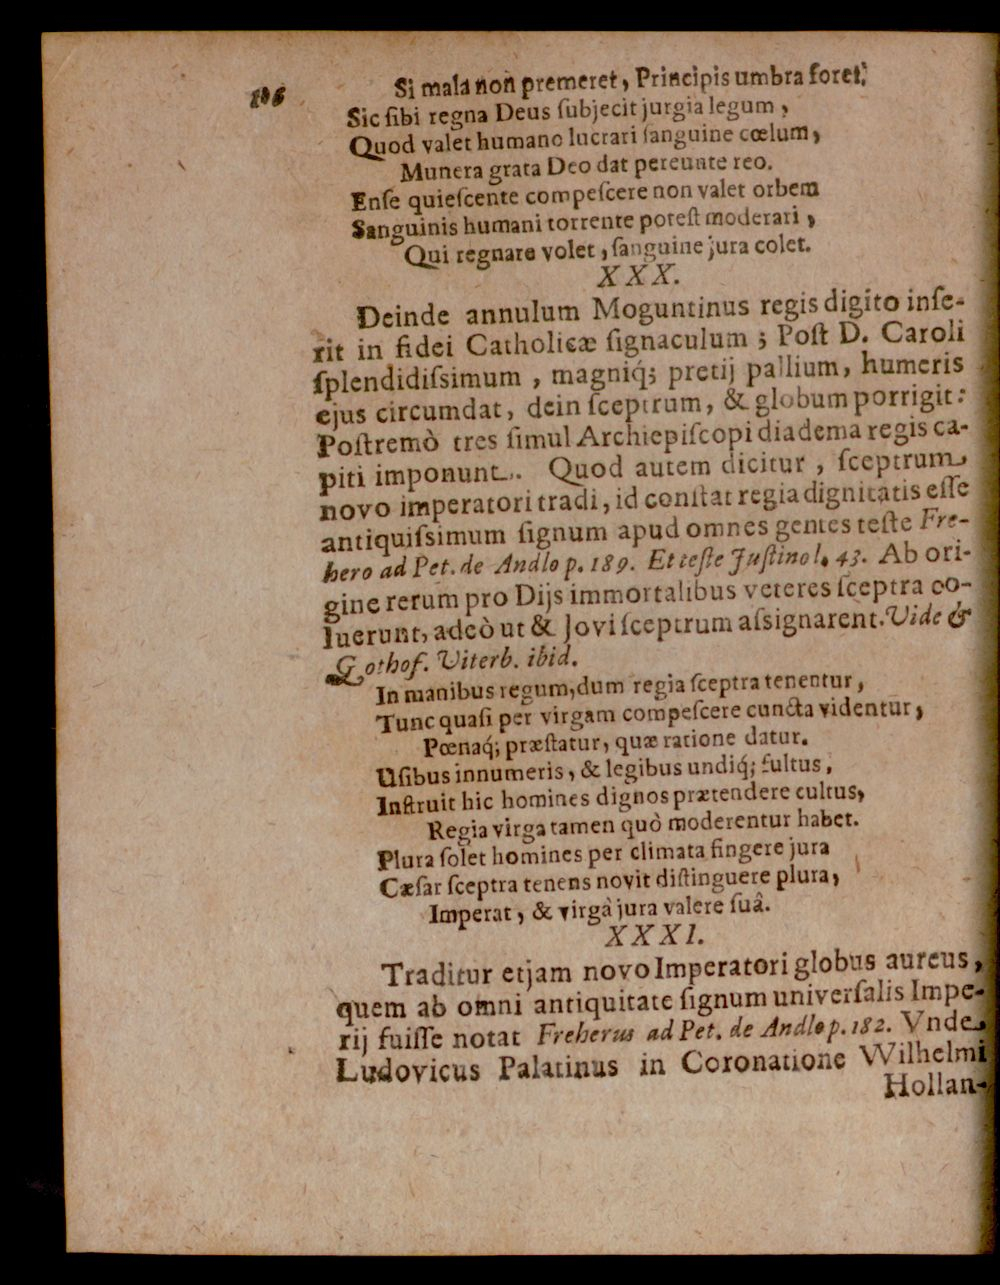 Si mala non premeret, Principis umbra foret;
Sic sibi regna Deus ſubjecit jurgia legum,
Quod valet humano lucrari ſanguine cœlum,
Munera grata Deo dat pereunte reo.
Enſe quieſcente compeſcere non valet orbem
Sanguinis humani torrente poteſt moderari,
Qui regnare volet, ſanguine jura colet.
XXX.
Deinde annulum Moguntinus regis digito inſe-
rit in fidei Catholicæ ſignaculum; Poſt D. Caroli
ſplendidiſsimum, magniq́; pretij pallium, humeris
ejus circumdat, dein ſceptrum, & globum porrigit:
Poſtremò tres ſimul Archiepiſcopi diadema regis ca-
piti imponunt. Quod autem dicitur, ſceptrum
novo imperatori tradi, id conſtat regia dignitatis eſſe
antiquiſsimum ſignum apud omnes gentes teſte Fre-
hero ad Pet. de Andlo p. 189. Et teſte Juſtino l. 43. Ab ori-
gine rerum pro Dijs immortalibus veteres ſceptra co-
luerunt, adeò ut & Jovi ſceptrum aſsignarent. Vide &
Gothof. Viterb. ibid.
In manibus regum, dum regia ſceptra tenentur,
Tunc quaſi per virgam compeſcere cuncta videntur,
Pœnaq́; præſtatur, quæ ratione datur.
Uſibus innumeris, & legibus undiq́; fultus,
Inſtruit hic homines dignos prætendere cultus,
Regia virga tamen quò moderentur habet.
Plura ſolet homines per climata fingere jura
Cæſar ſceptra tenens novit diſtinguere plura,
Imperat, & virgà jura valere ſuâ.
XXXI.
Traditur etjam novo Imperatori globus aureus,
quem ab omni antiquitate ſignum univerſalis Impe-
rij fuiſſe notat Freherus ad Pet. de Andlo p. 182. Vnde
Ludovicus Palatinus in Coronatione Wilhelmi
Hollan-